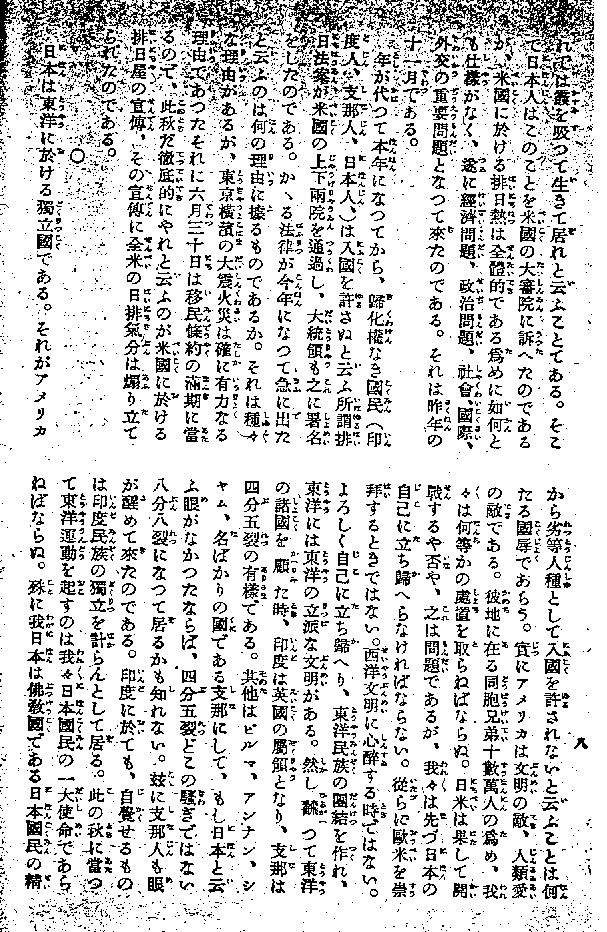 れでは叢を咬つて生きて居れと云ふことである。そこ
で日本人はこのことを米國の大審院に訴へたのである
が、米國に於ける排日熱は全體的である爲めに如何と
も仕樣がなく、遂に經濟問題、政治問題、社會、國際、
外交の重要問題となつて來たのである。それは昨年の
十一月である。
年が代つて本年になつてから、歸化權なき國民(印
度人、支那人、日本人、)は入國を許さぬと云ふ所謂排
日法案が米國の上下兩院を通過し、大統領も之に署名
をしたのである。かゝる法律が今年になつて急に出た
と云ふのは何の理由に據るものであるか。それは種々
な理由があるが、東京橫濱の大震火災は確に有力なる
理由であつたそれに六月三十日は移民條約の滿期に當
るので、此秋だ徹底的にやれと云ふのが米國に於ける
排日屋の宣傳、その宣傳に全米の日排氣分は煽り立て
られたのである。
○
日本は東洋に於ける獨立國である。それがアメリカ
から劣等人種として入國を許されないと云ふことは何
たる國辱でおらう。實にアメリカは文明の敵、人類愛
の敵である。彼地に在る同胞兄弟十數萬人の爲め、我
々は何等かの處置を取らねばならぬ。日米は果して開
戰するや否や、之は問題であるが、我々は先づ日本の
自己に立ち歸へらなければならない。徒らに歐米を崇
拜するときではない。西洋文明に心醉する時ではない。
よろしく自己に立ち歸へり、東洋民族の團結を作れ、
東洋には東洋の立派な文明がある。然し飜つて東洋
の諸國を顧た時、印度は英國の屬領となり、支那は
四分五裂の有樣である。其他はビルマ、アンナン、シ
ヤム、名ばかりの國である支那にして、もし日本と云
ふ眼がなかつたならば、四分五裂どこの騷ぎではない
八分八裂になつて居るかも知れない。玆に支那人も眼
が醒めて來たのである。印度に於ても、自覺せるもの
は印度民族の獨立を計らんとして居る。此の秋に當つ
て東洋運動を起すのは我々日本國民の一大使命であら
ねばならぬ。殊に我日本は佛敎國である日本國民の精
八